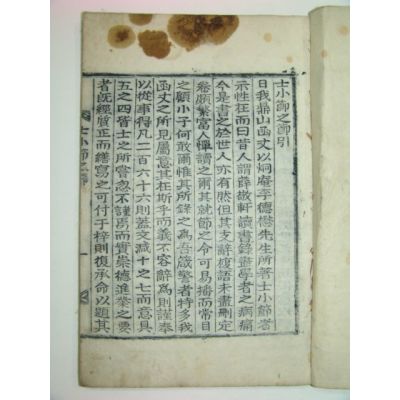 士小節之節引
日我鼎山函丈以炯庵李德懋先生所著士小節者
示性狂而言曰昔人謂薛敬軒讀書錄盡學者之病痛
今是書之於世人亦有然者但支辭複語未盡刪定
卷頗繁富人憚讀之爾其就節之令可易播而常目
之顧小子何敢爾惟其所錄之爲吾箴警者特多我
函丈之所見屬意其在斯乎而義不容辭爲則謹奉
以從事得凡二百六十六則蓋文減十之七而意具
五之四皆士之所嘗忽不謹焉而實崇德進業之要
者旣經質正而繕寫之可付于梓則復承命以題其
士小節之節